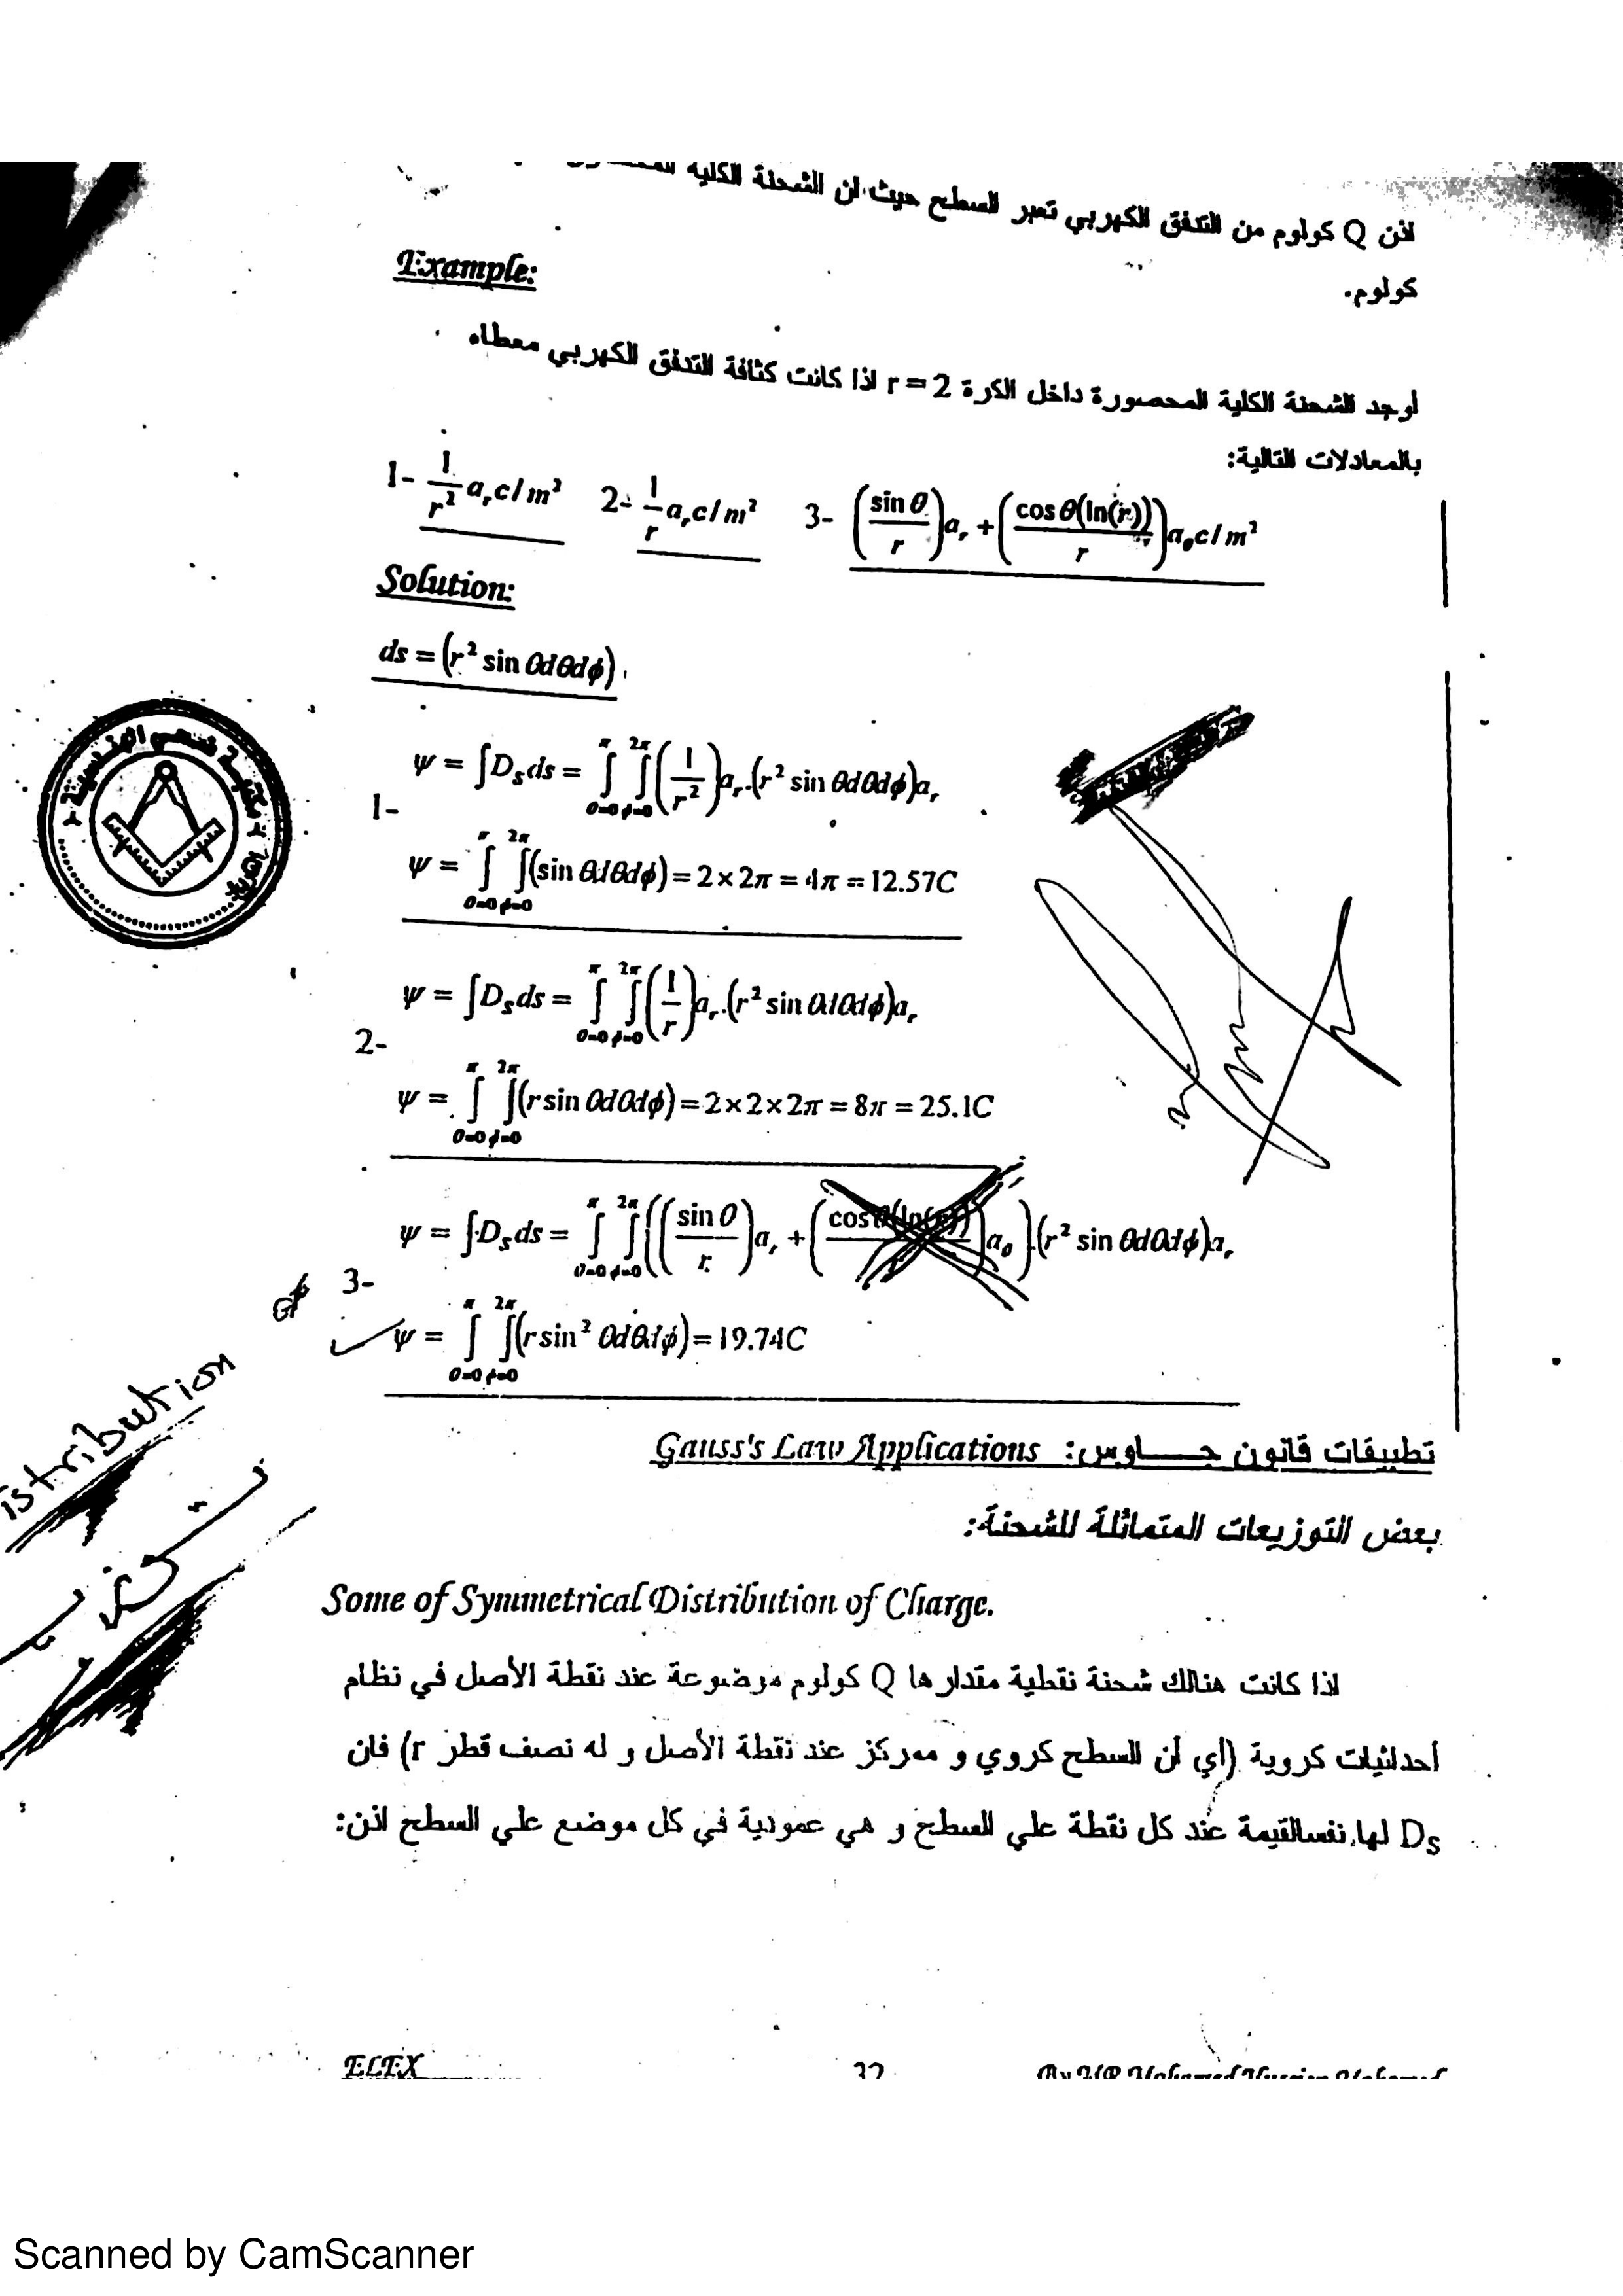 اذن Q كولوم من التدفق الكهربي تعبر السطح حيث ان الشحنة الكلية
كولوم.
Example:
أوجد الشحنة الكلية المحصورة داخل الكرة r = 2 اذا كانت كثافة التدفق الكهربي معطاه
بالمعادلات التالية:
1- \frac{1}{r^2} a_r c/m^2 2- \frac{1}{r} a_r c/m^2 3- (\frac{\sin θ}{r}) a_r + (\frac{\cos θ(\ln(r))}{r}) a_θ c/m^2
Solution:
ds = (r^2 sin θdθdϕ)
ψ = ∫D_S ds = ∫_{θ=0}^{π} ∫_{ϕ=0}^{2π} (\frac{1}{r^2}) a_r.(r^2 sin θdθdϕ)a_r
1-
ψ = ∫_{θ=0}^{π} ∫_{ϕ=0}^{2π} (sin θdθdϕ) = 2×2π = 4π = 12.57C
ψ = ∫D_S ds = ∫_{θ=0}^{π} ∫_{ϕ=0}^{2π} (\frac{1}{r}) a_r.(r^2 sin θdθdϕ)a_r
2-
ψ = ∫_{θ=0}^{π} ∫_{ϕ=0}^{2π} (r sin θdθdϕ) = 2×2×2π = 8π = 25.1C
ψ = ∫D_S ds = ∫_{θ=0}^{π} ∫_{ϕ=0}^{2π} ((\frac{\sin θ}{r}) a_r + (\frac{\cos θ(\ln(r))}{r}) a_θ).(r^2 sin θdθdϕ)a_r
3-
ψ = ∫_{θ=0}^{π} ∫_{ϕ=0}^{2π} (r sin^2 θdθdϕ) = 19.74C
istribution
تطبيقات قانون جـــاوس: Gauss's Law Applications
بعض التوزيعات المتماثلة للشحنة:
Some of Symmetrical Distribution of Charge.
اذا كانت هنالك شحنة نقطية مقدارها Q كولوم موضوعة عند نقطة الأصل في نظام
أحداثيات كروية (أي أن السطح كروي و ممركز عند نقطة الأصل و له نصف قطر r) فان
D_S لها نفسالقيمة عند كل نقطة علي السطح و هي عمودية في كل موضع علي السطح اذن:
ELEX 32 By UR Mohamed Hussien Mohamed
Scanned by CamScanner